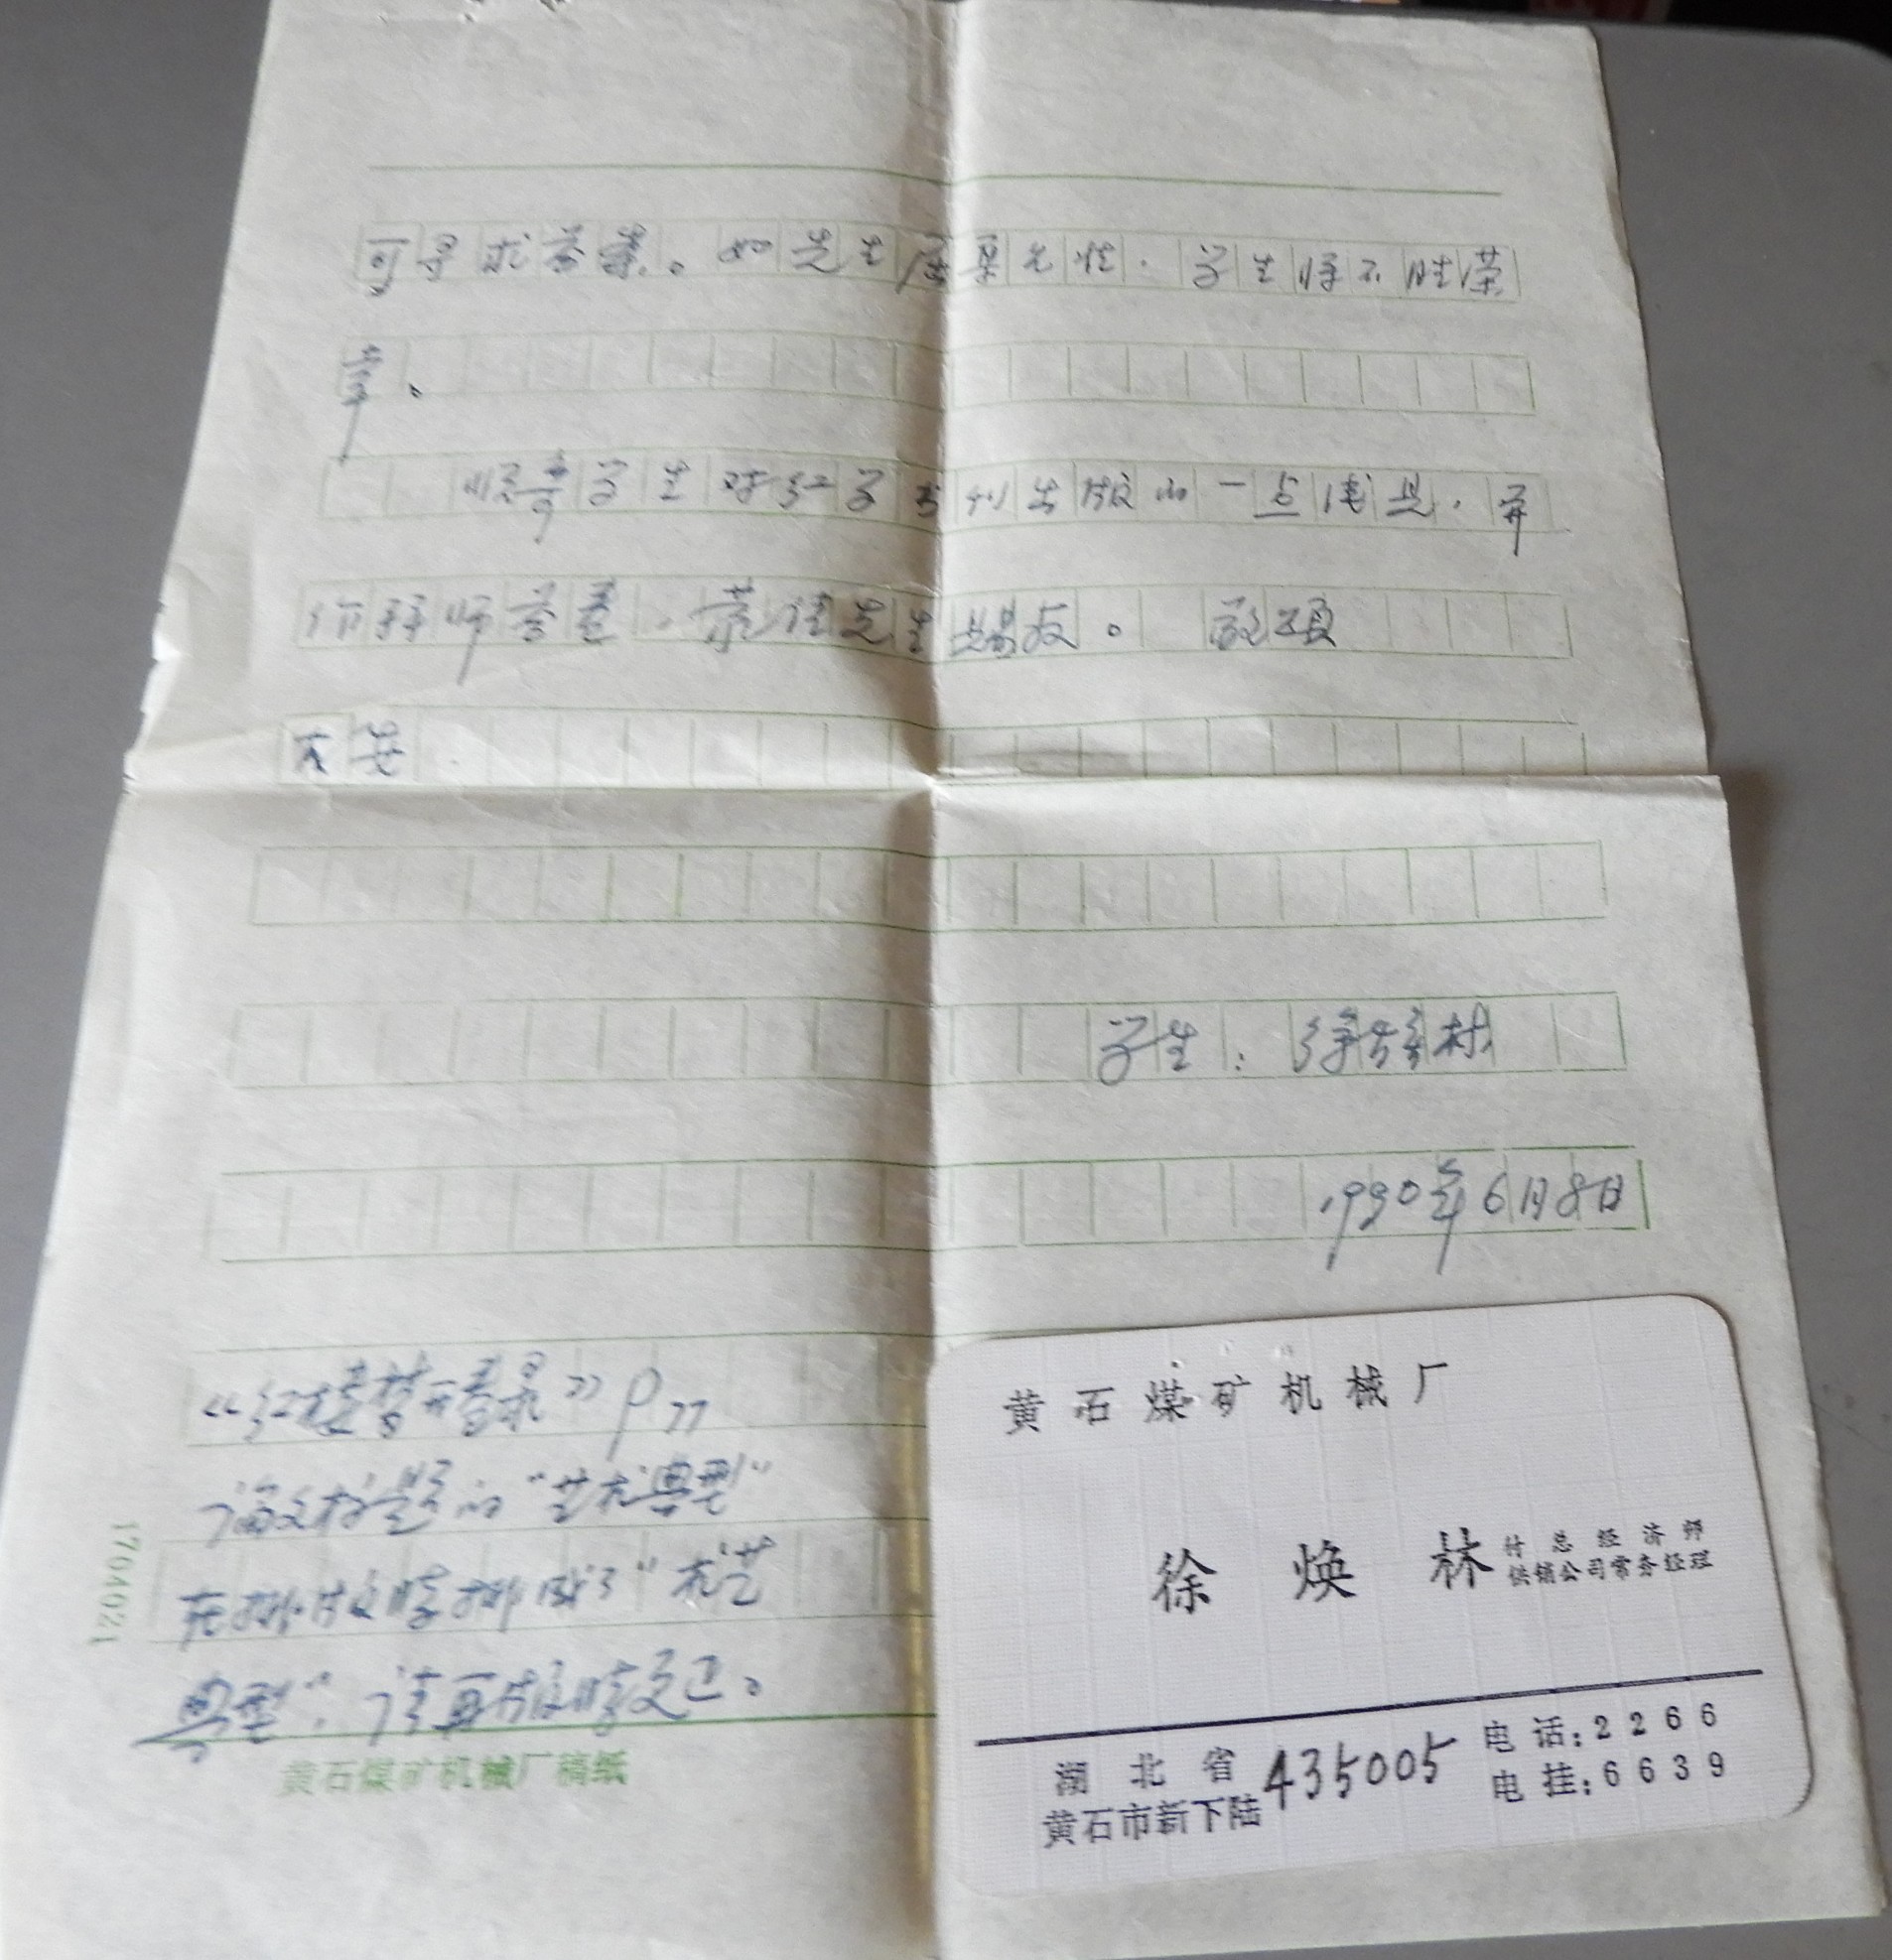 可寻求答案。如先生 学生将不胜荣
幸。
顺寄学生对红学书刊出版的一点 见，并
作拜师答卷，恭请先生 教。 敬颂
大安
学生：徐焕林
1990年6月8日
《红楼梦 录》P77
论文标题的“艺术典型”
在排版时排成了“术艺
典型”，请再版时更正。
1704021
黄石煤矿机械厂稿纸
黄石煤矿机械厂
徐焕林 付总经济师
供销公司常务经理
湖北省 435005 电话：2266
黄石市新下陆 电挂：6639